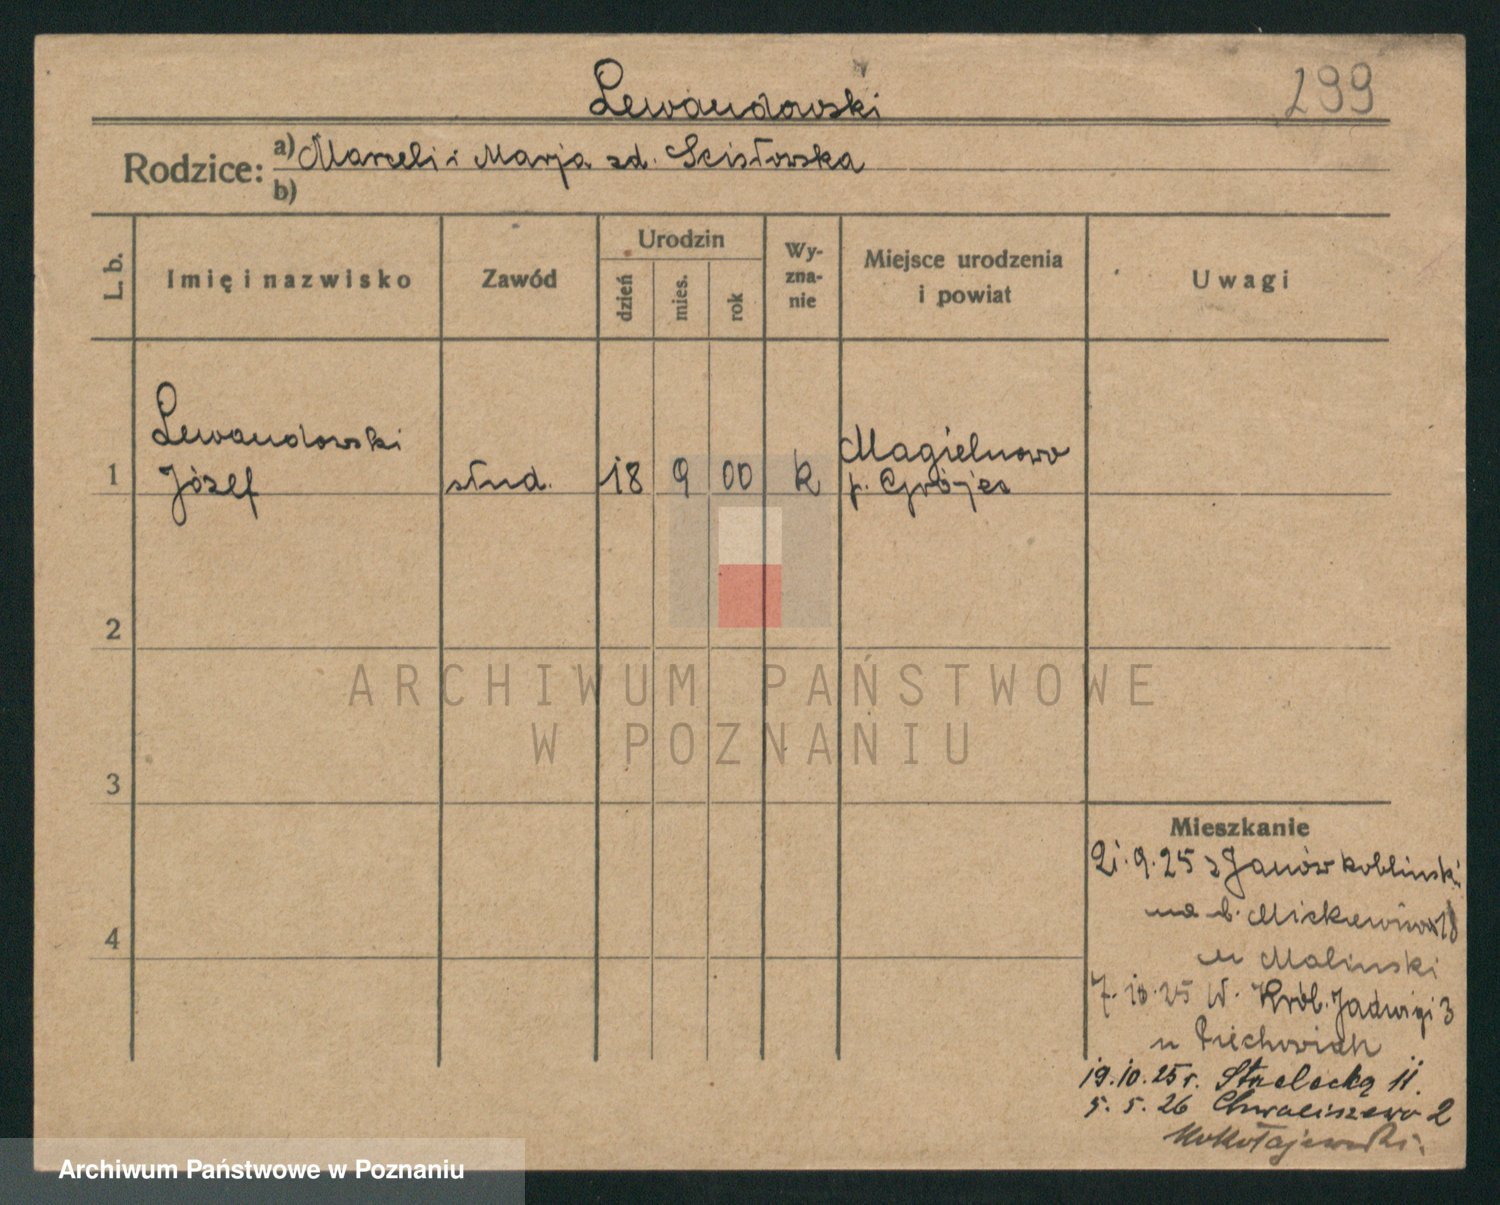 Lewandowski
299
Rodzice: a) Marceli i Marja zd. Scisłowska
b)
L. b.
Imię i nazwisko
Zawód
Urodzin
dzień
mies.
rok
Wy-
zna-
nie
Miejsce urodzenia
i powiat
Uwagi
1
Lewandowski
Józef
stud.
18
9
00
k
Magielnowo
p. Grójec
2
3
4
Mieszkanie
21.9.25 z Janów koblinski
na b. Mickiewicza 18
u Malinski
7.10.25 W. Król. Jadwigi 3
u
19.10.25 r. Strzelecką 11.
5.5.26 Chwaliszewo 2
ARCHIWUM PAŃSTWOWE
W POZNANIU
Archiwum Państwowe w Poznaniu